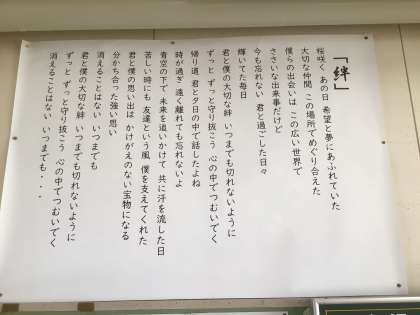 「絆」
桜咲く あの日 希望と夢にあふれていた
大切な仲間 この場所でめぐり合えた
僕らの出会いは この広い世界で
ささいな出来事だけど
今も忘れない 君と過ごした日々
輝いてた毎日
君と僕の大切な絆 いつまでも切れないように
ずっと ずっと守り抜こう 心の中でつむいでく
帰り道 君と夕日の中で話したよね
時が過ぎ 遠く離れても忘れないよ
青空の下で 未来を追いかけて 共に汗を流した日
苦しい時にも 友達という風 僕を支えてくれた
君と僕の思い出は かけがえのない宝物になる
分かち合った強い思い
消えることはない いつまでも
君と僕の大切な絆 いつまでも切れないように
ずっと ずっと守り抜こう 心の中でつむいでく
消えることはない いつまでも・・・